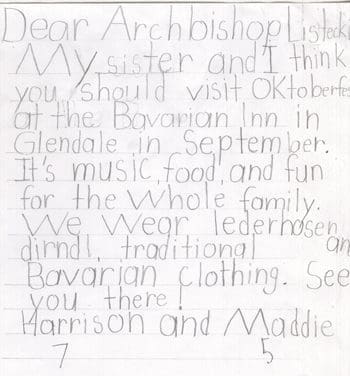 Dear Archbishop Listecki
My sister and I think
you should visit Oktoberfes
at the Bavarian Inn in
Glendale in September.
It's music, food, and fun
for the whole family.
We wear lederhosen
dirndl, traditional an
Bavarian clothing. See
you there!
Harrison and Maddie
7 5